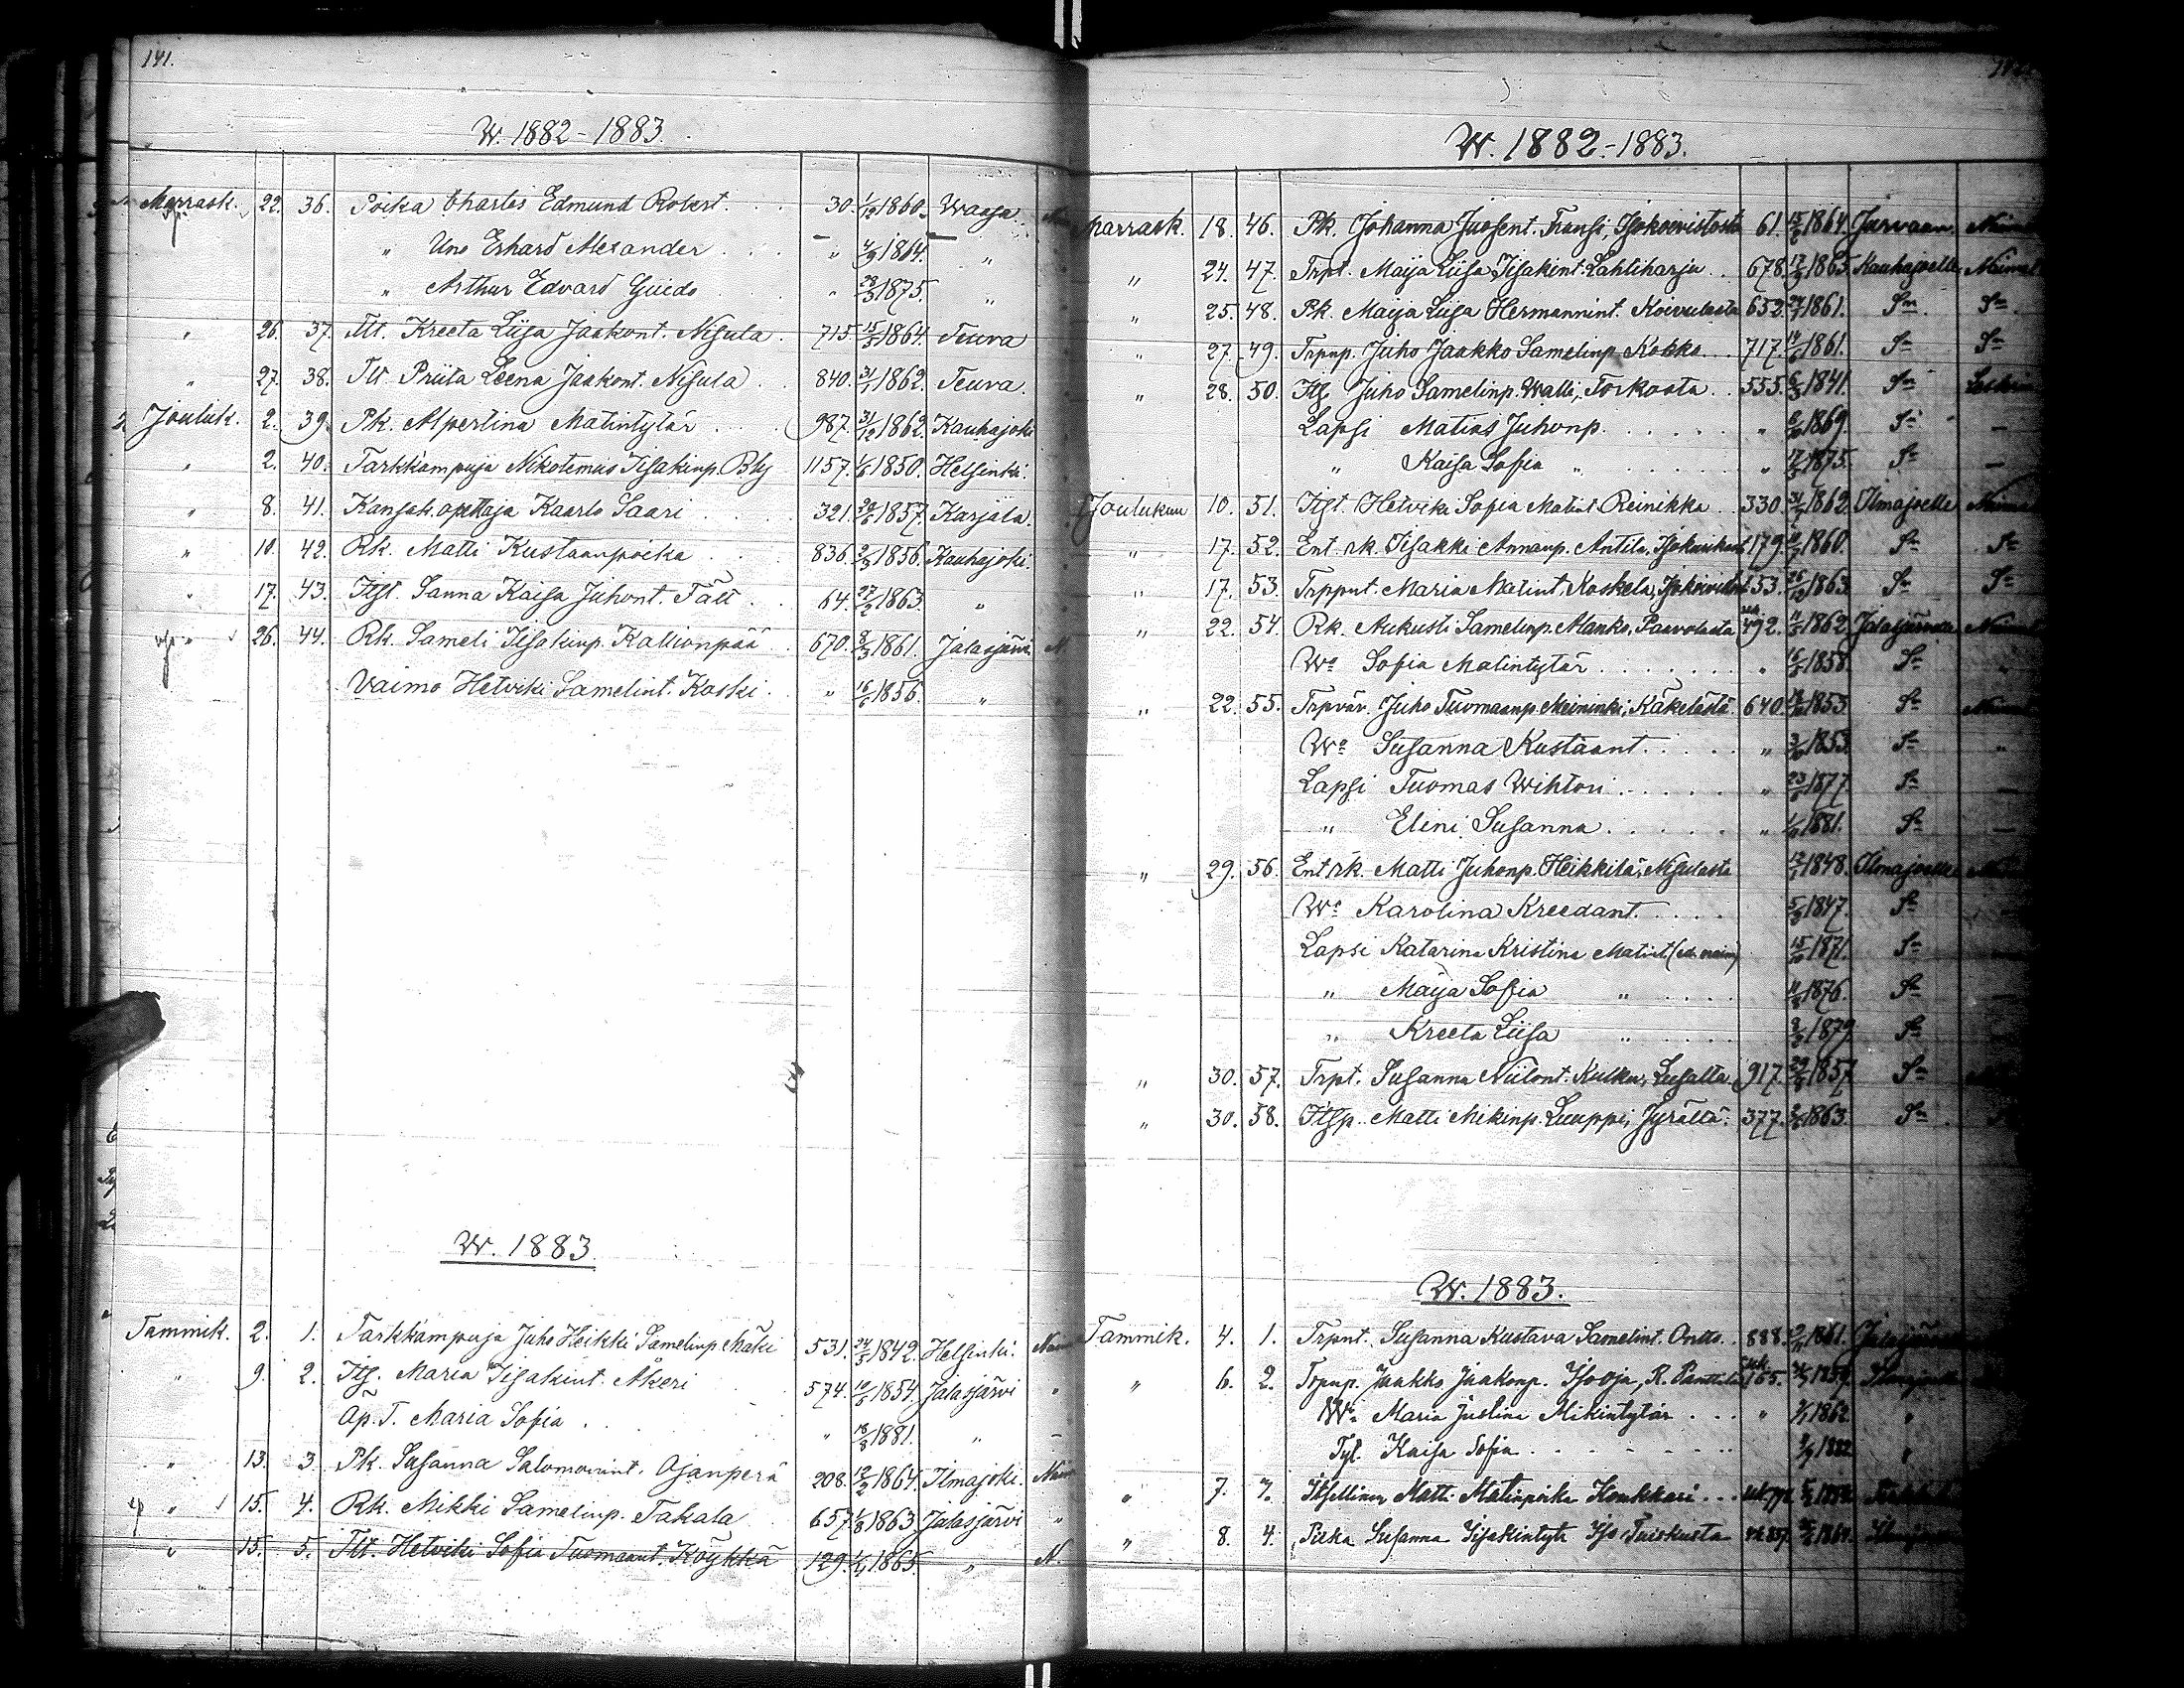 141.
W. 1882-1883.
Marrask. 22. 36. Poika Charles Edmund Robert. 30. 1/12 1860. Waasa.
" Uno Erhard Alexander " 4/9 1864. "
" Arthur Edvard Guido " 28/3 1875. "
" 26. 37. Tlt. Kreeta Liisa Jaakont. Nisula. 715. 15/3 1864. Teuva
" 27. 38. Tlt. Priita Leena Jaakont. Nisula. 840. 31/1 1862. Teuva.
Jouluk. 2. 39. Pk. Alpertina Matintytär 987. 31/12 1862. Kauhajoki
" 2. 40. Tarkkampuja Nikotemus Iisakinp. Bly 1157. 1/6 1850. Helsinki.
" 8. 41. Kansak.opettaja Kaarlo Saari 321. 1857. Karjala.
" 10. 42. Rk. Matti Kustaanpoika 836. 2/3 1856. Kauhajoki.
" 17. 43. Itgt. Sanna Kaisa Juhont. Fält 64. 27/2 1863. "
" 26. 44. Rk. Sameli Iisakinp. Kallionpää 670. 8/3 1861. Jalasjärvi N.
Vaimo Hetviki Samelint. Koski. " 16/6 1856. "
W. 1883.
Tammik. 2. 1. Tarkkampuja Juho Heikki Samelinp. Mäki 531. 24/5 1842. Helsinki.
" 9. 2. Itg. Maria Iisakint. Åkeri 574. 10/6 1854. Jalasjärvi "
Äp. T. Maria Sofia " 18/8 1881. " -
" 13. 3. Pk. Susanna Salomonint. Ojanperä 208. 12/3 1864. Ilmajoki.
" 15. 4. Rk. Mikki Samelinp. Takala 657. 1/8 1863. Jalasjärvi "
" 15. 5. Tlt. Hetviki Sofia Tuomaant. Köykkä 129. 1865. " N.
W. 1882-1883.
Marrask. 18. 46. Pk. Johanna Juosent. Fransi, Isokoivistosta 61. 1864.
" 24. 47. Trpt. Maija Liisa Iisakint. Lahtiharju 678. 1865. Kauhajoelle
" 25. 48. Pk. Maija Liisa Hermannint. Koivulasta 652. 1861. Sn Sn
" 27. 49. Trpnp. Juho Jaakko Samelinp. Kokko 717. 1861. Sn Sn
" 28. 50. Itg. Juho Samelinp. Walli, Torkosta 555. 1841. Sn
Lapsi Matias Juhonp. " 1869. Sn -
" Kaisa Sofia " " 1875. Sn -
Joulukuu 10. 51. Itgt. Hetviki Sofia Matint. Reinikka 330. 1862. Ilmajoelle
" 17. 52. Ent. rk. Iisakki Annanp. Antila, 179. 1860. Sn Sn
" 17. 53. Trppnt. Maria Matint. Koskela, 53. 1863. Sn Sn
" 22. 54. Rk. Aukusti Samelinp. Manko, Paavolasta 492. 1862. Jalasjärvelle
Wo Sofia Matintytär " 1858. Sn
" 22. 55. Trpväv. Juho Tuomaanp. Meininki, Käkelästä 640. 1853. Sn
Wo Susanna Kustaant. " 1853. Sn "
Lapsi Tuomas Wihtori " 1877. Sn -
" Elini Susanna " 1881. Sn -
" 29. 56. Ent. rk. Matti Juhonp. Heikkilä, Nisulasta 1848. Ilmajoelle
Wo Karolina Kreedant. 1847. Sn
Lapsi Katarina Kristina Matint. 1871. Sn
" Maija Sofia " 1876. Sn
" Kreeta Liisa " 1879. Sn
" 30. 57. Trpt. Susanna Niilont. Kulku, 917. 1857. Sn
" 30. 58. Itgp. Matti Mikinp. Luuppi, Jyrältä 377. 1863. Sn
W. 1883.
Tammik. 4. 1. Trpnt. Susanna Kustava Samelint. Ontto. 888. 1861.
" 6. 2. Trpnp. Jaakko Jaakonp. Isooja, R. 165. 1859.
Wo Maria Justina Mikintytär " 1862. "
Tyt. Kaisa Sofia 1882 "
" 7. Itsellinen Matti Matinpoika
" 8. 4. Piika Susanna Iisakintytr 1864.